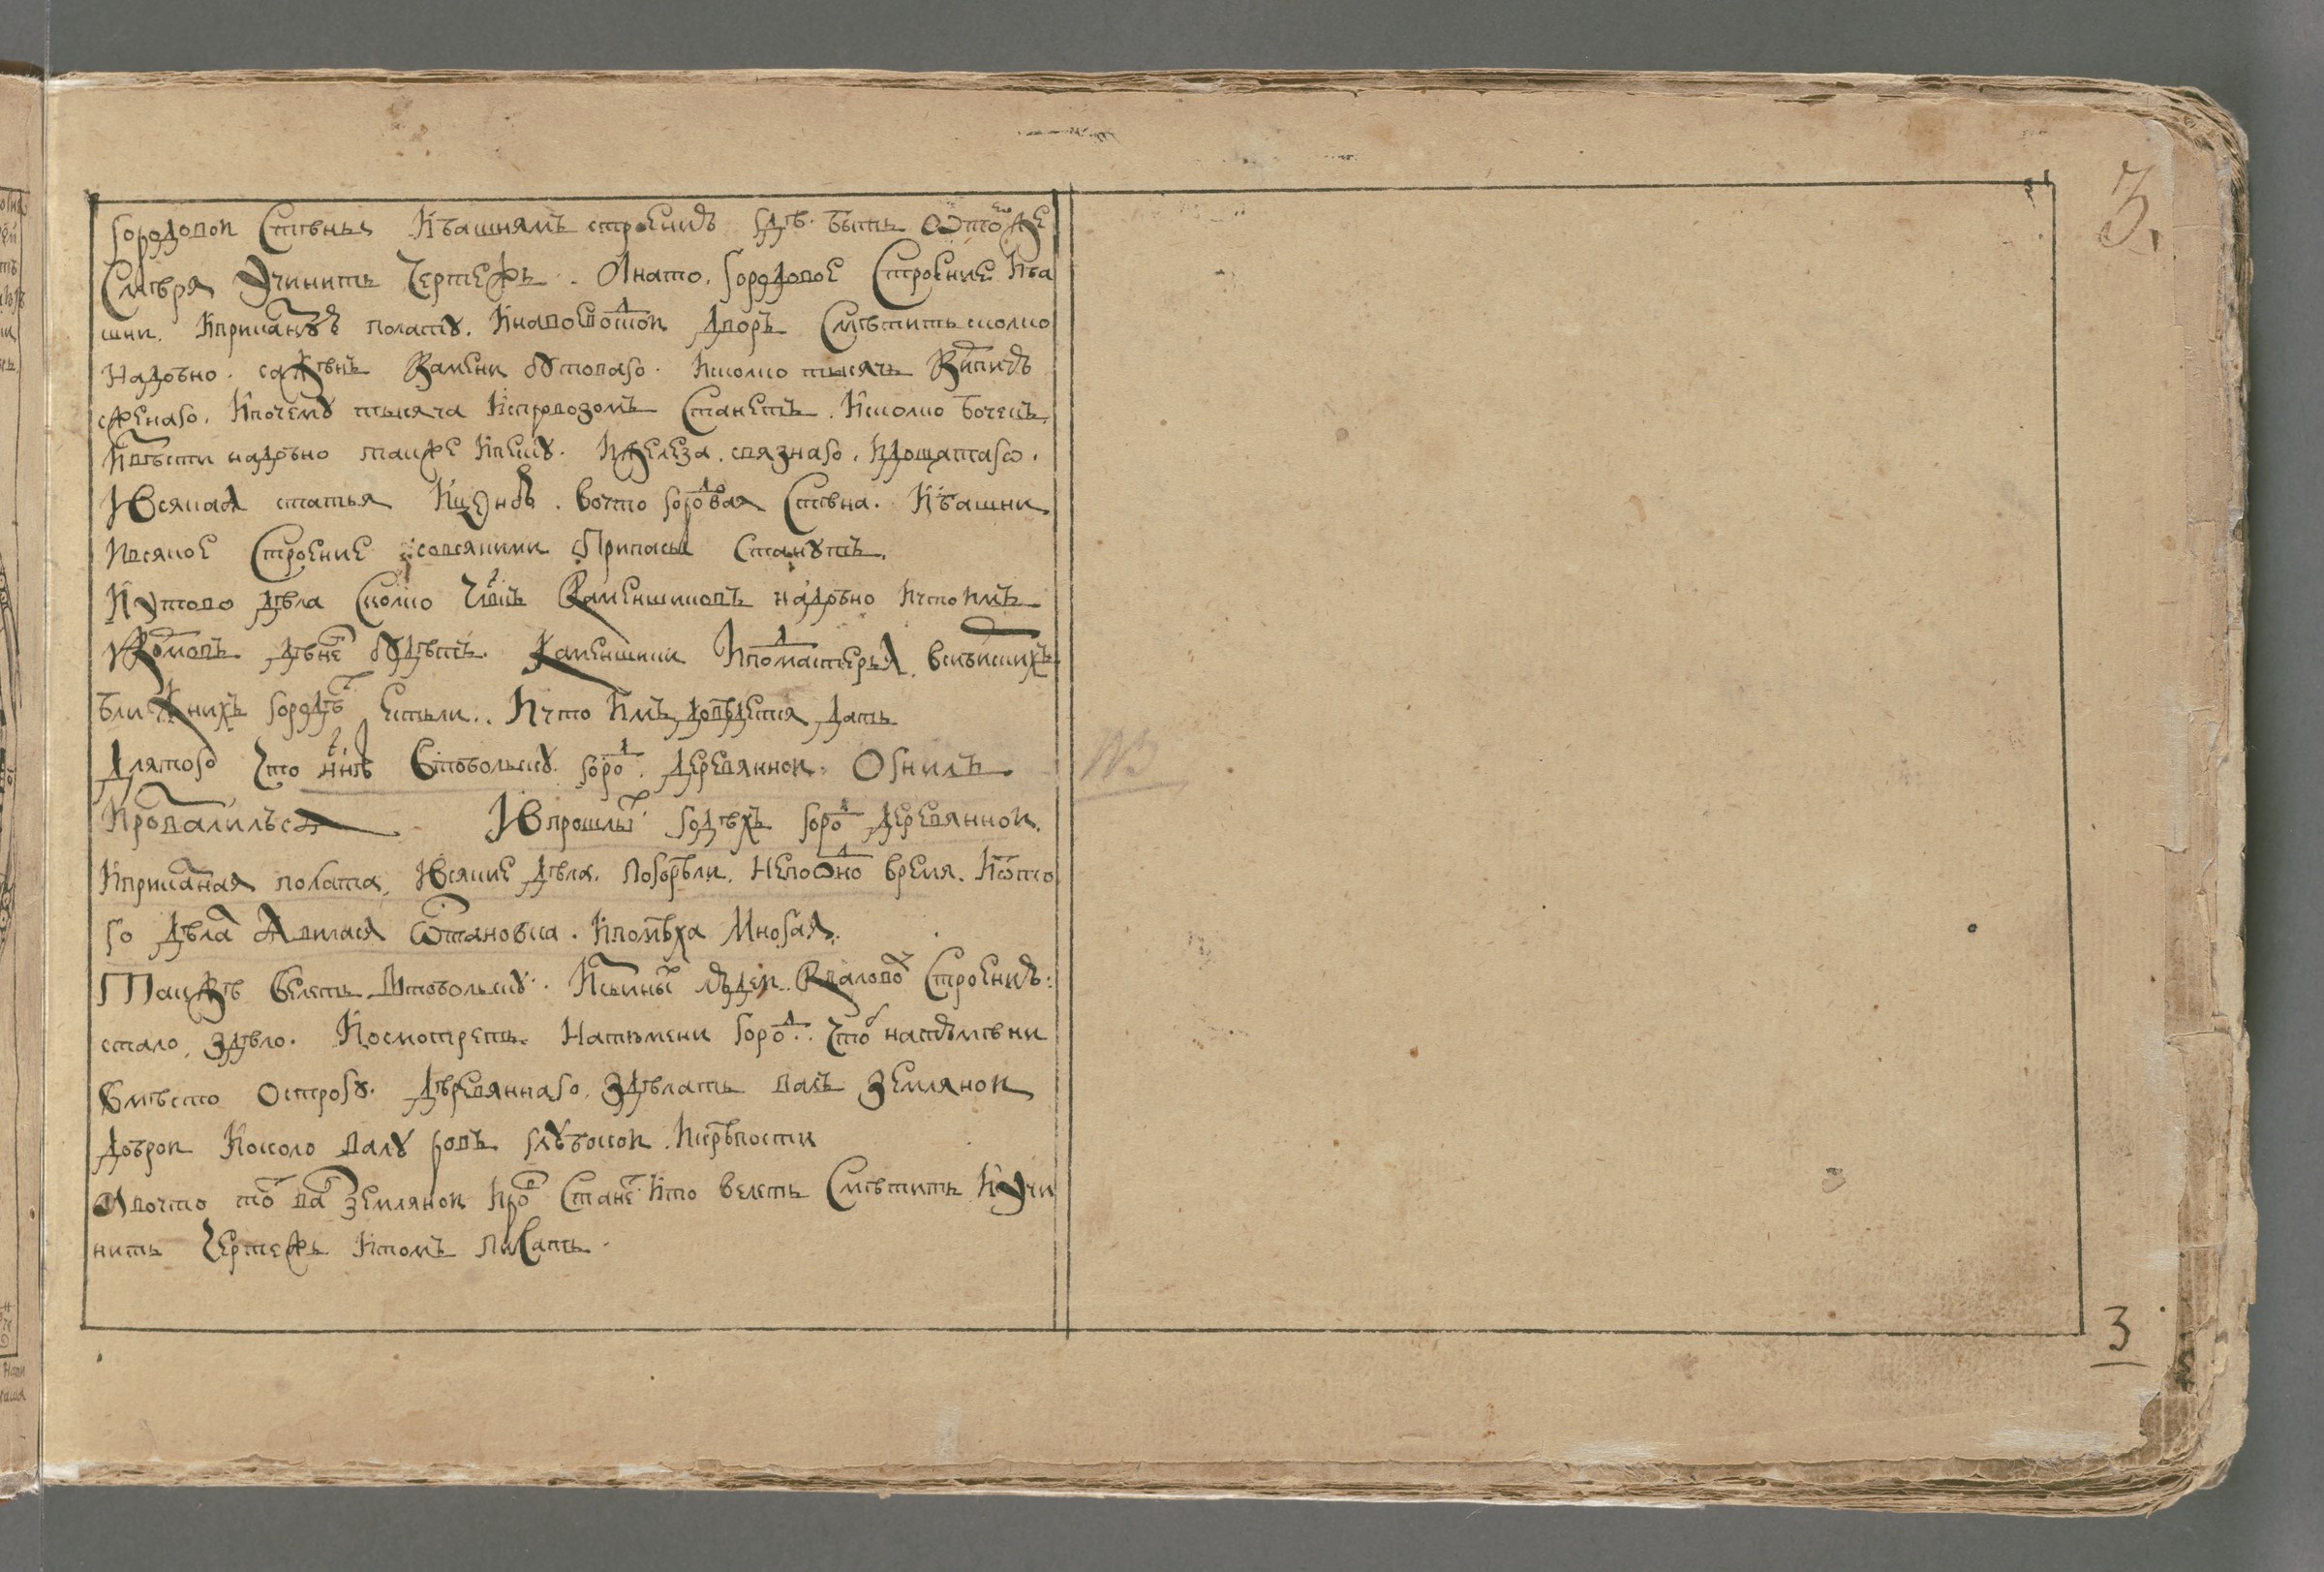 городовои стѣны и башнямъ строению гдѣ быть ѿтоже
смѣря учинить чертежъ. А на то городовое строение и ба
шни. и приказную полату. и на восводцкои дворъ смѣтить сколко
надобно. сажѣнь камени бутоваго. и сколко тысячь кирпичю
жженаго. и почему тысяча и с провозомъ станетъ. и сколко бочекъ
извѣсти надобно также и песку. и желѣза. связнаго. и дощатаго.
и всякая статья и цѣною. во что городовая стѣна. и башни
и всякое строение со всякими припасы стануть.
и у того дѣла сколко члвкъ каменщиковъ надобно и что имъ
кормовъ дѣнегъ будѣтъ. каменщики и подмастерья. в сибирскихъ
ближнихъ городѣхъ есть ли. и что имъ довѣдется дать
для того что ннѣ в тоболску город деревяннои. огнилъ
и рвалился и в прошлых годѣхъ город деревяннои.
и приказная полата. и всякие дѣла. погорѣли. не по одно время. и ѿ то
го дѣламъ великая ѿстановка. и помѣха многая.
Такжѣ велеть в тоболску. и иных людеи к валовому строению
стало. здѣло. и осмотреть. на тюмени город. что б на тюмѣни
вмѣсто острогу. дѣревяннаго. здѣлать валъ землянои
доброи и около валу ровъ глубокои. и крѣпости
А во что тот вал землянои и ров станет и то велеть смѣтить и учи
нить чертежъ и томъ писать.
3.
3